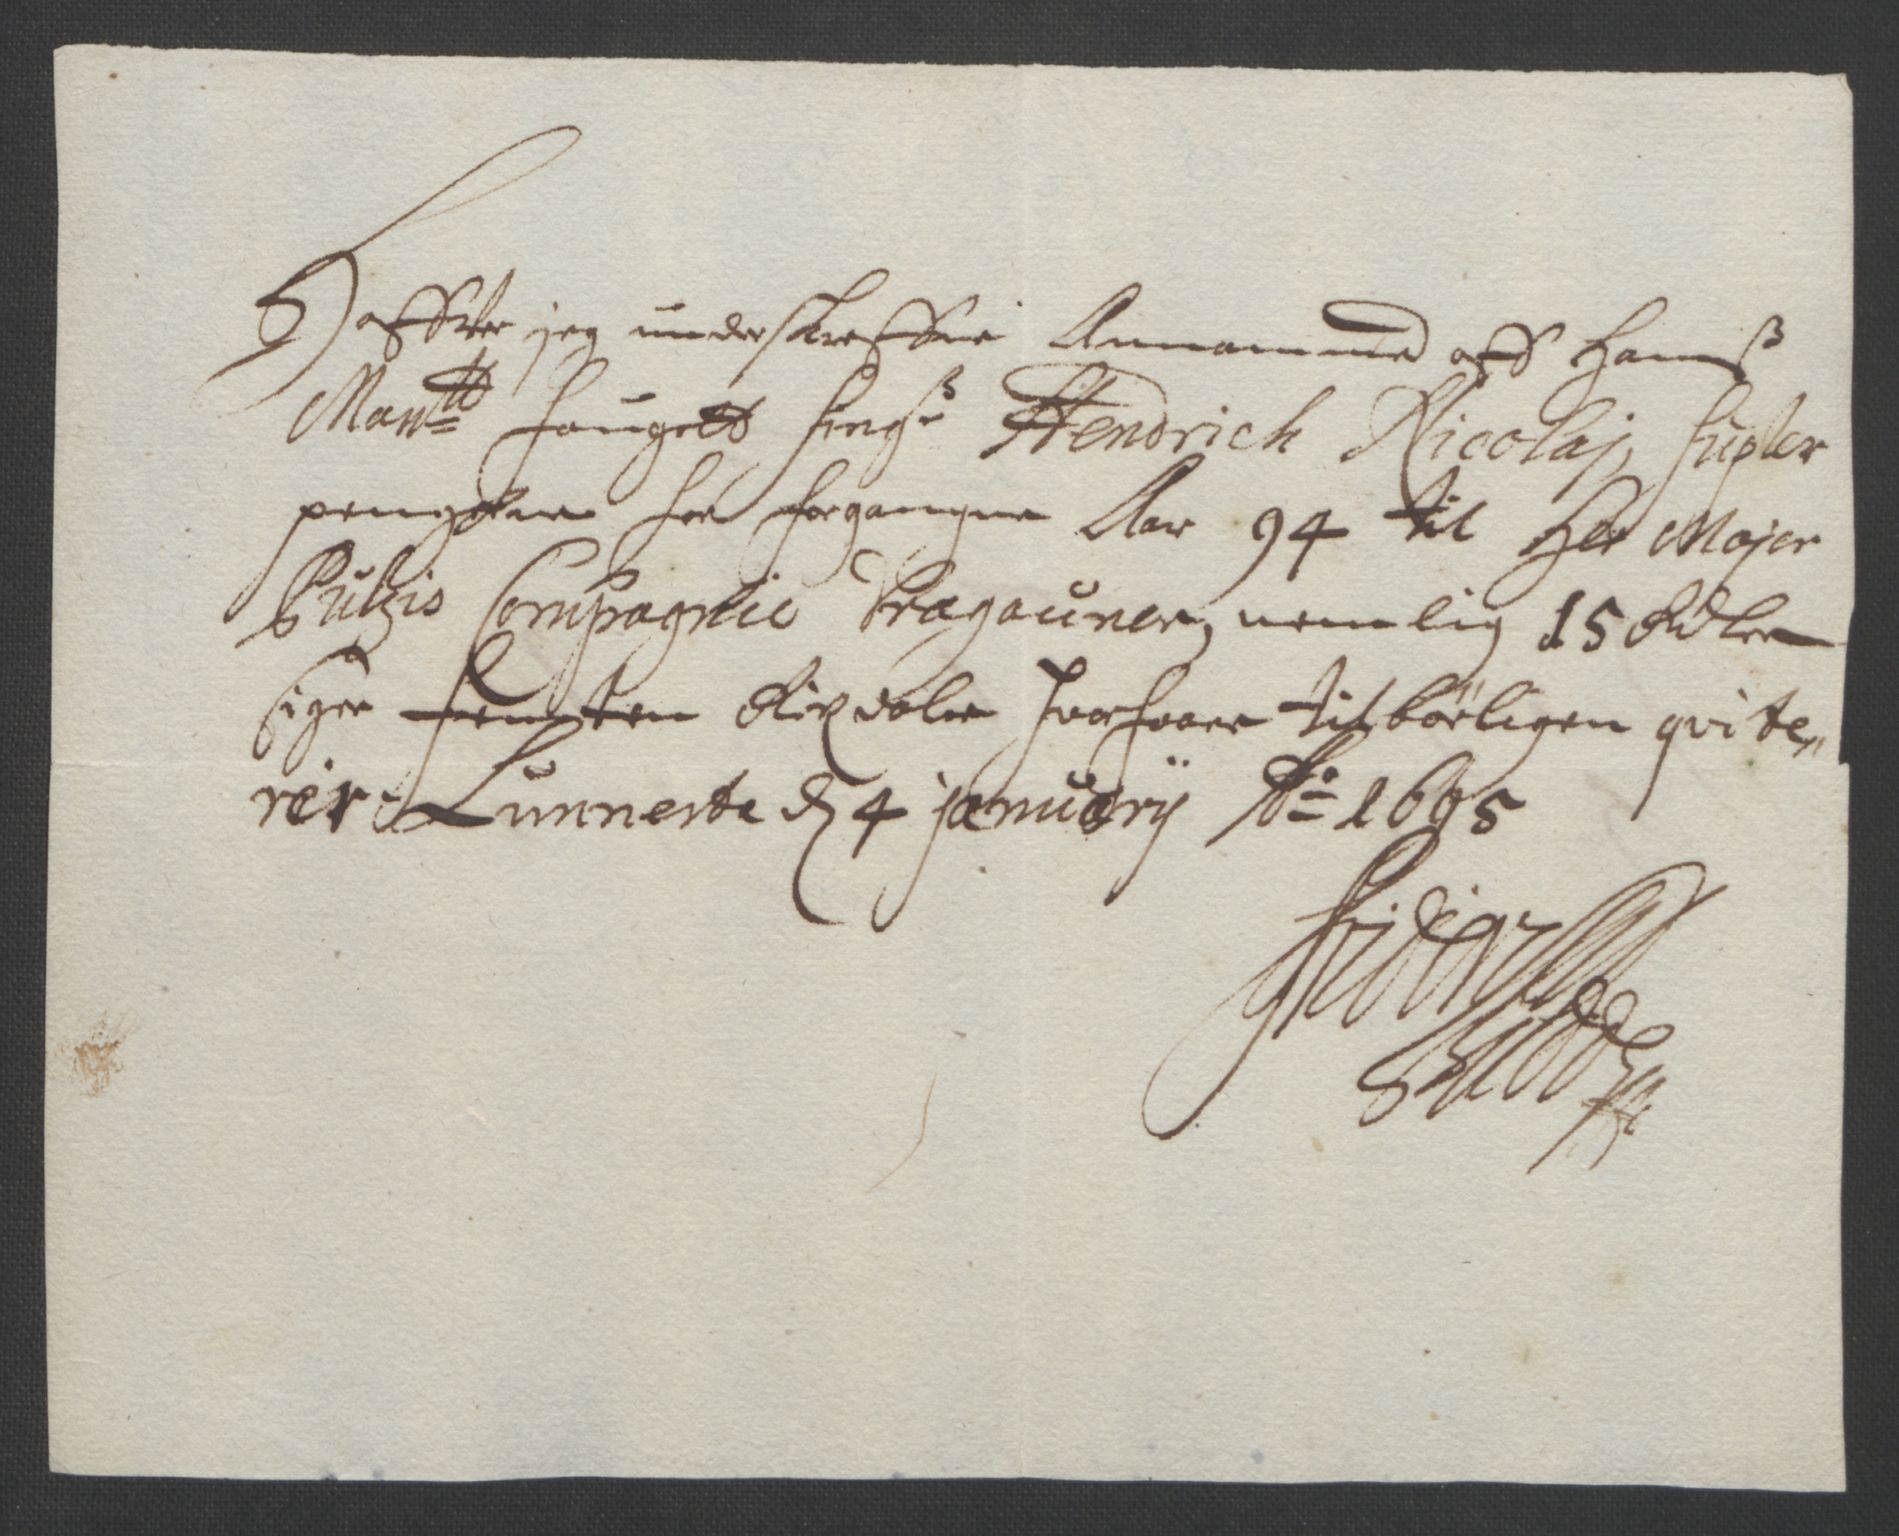 Haffver jeg underskreffne Annammed aff Hanß
May.tt fougett Sing.r Hendrich Nicolaj,
pengene for forgangne Aar 94 til Her Major
Pultzis Compagnie Dragauner, nemlig 15 Rdler
siger femten Rixdaler hvorfore tilbörligen qvite„
rer Lunneste d 4 januarij Ao 1695